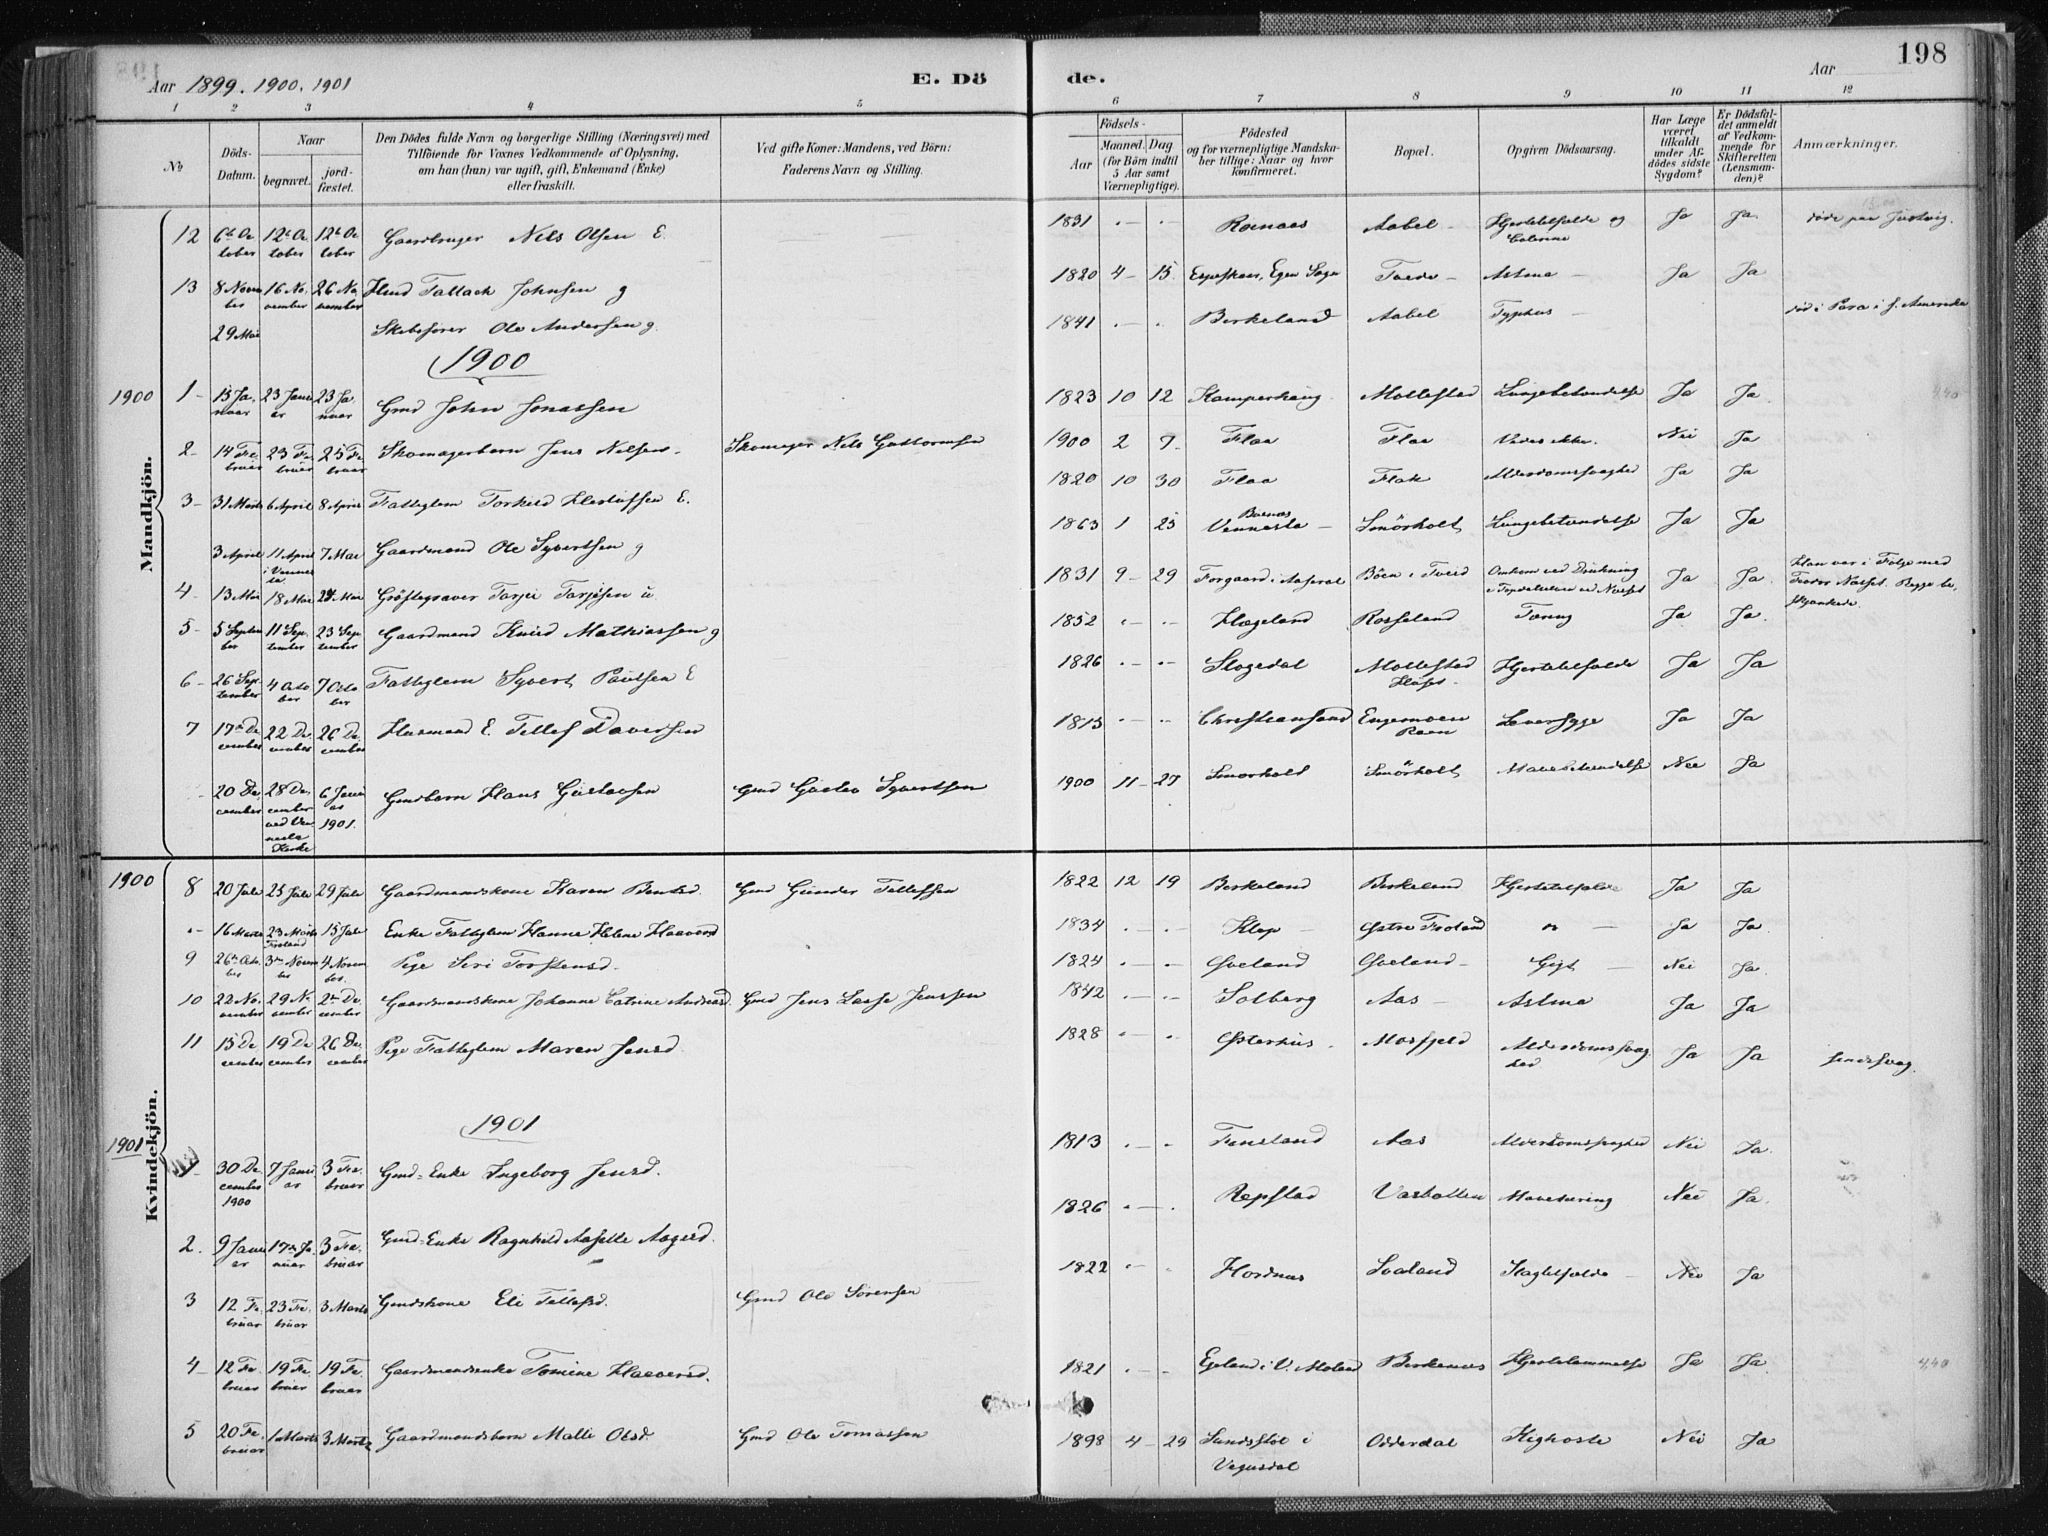 Aar 1899. 1900. 1901
E. Dö
de.
Aar
198
1 2 3 4 5 6 7 8 9 10 11 12
No
Döds-
Datum.
Naar
begravet.
jord-
fæstet.
Den Dödes fulde Navn og borgerlige Stilling (Næringsvei) med
Tilföiende for Voxnes Vedkommende af Oplysning,
om han (hun) var ugift, gift, Enkemand (Enke)
eller fraskilt.
Ved gifte Koner: Mandens, ved Börn:
Faderens Navn og Stilling.
Födsels-
Aar
Maaned. Dag
(for Börn indtil
5 Aar samt
Værnepligtige).
Födested
og for værnepligtige Mandska-
ber tillige: Naar og hvor
konfirmeret.
Bopæl.
Opgiven Dödsaarsag.
Har Læge
været
tilkaldt
under Af-
dödes sidste
Sygdom?
Er Dödsfal-
det anmeldt
af Vedkom-
mende for
Skifteretten
(Lensman-
den)?
Anmærkninger.
Mandkjön.
12 6te October 12te October 12te October Gaardbruger Nils Olsen E. 1831 Aabel Hjertelfælde og Ja Ja
13 8 November 16 November 26 November Tallack Johnsen g 1820 4 15 Astma Ja Ja
29 Mai Skibsfører Ole Andersen g. 1841 Birkeland Aabel Typhus død i Para i S. Amerika
1900
1900 1 15 Januar 23 Januar 23 Januar Gmd John Jonassen 1823 10 12 Kamperhaug Mollestad Lungebetændelse Ja Ja
2 14 Februar 23 Februar 25 Februar Skomagerbarn Jens Nilsen Skomager Nils Guttormsen 1900 2 7 Flaa Flaa Vides ikke. Nei Ja
3 31 Marts 6 April 8 April Fattiglem Torkild E. 1820 10 30 Flaa Flak Alderdomssvaghed Ja Ja
3 April 11 April i Vennesla 7 Mai Gaardmand Ole Syvertsen g 1863 1 25 Vennesla Smörholt Lungebetændelse Ja Ja
4 13 Mai 18 Mai 24 Mai Grøftegraver Tarjei Tarjesen u. 1831 9 29 i Aaseral Böen i Tveid Omkom ved Drukning Ja Ja Han var i Følge med
5 5 September 11 September 23 September Gaardmand Knud Mathiassen g 1852 Hægeland Rosseland Tæring Ja Ja
6 26 September 4 October 7 October Fattiglem Syvert Paulsen E 1826 Mollestad Hjertelfælde Ja Ja
7 17de December 22 December 26 December Husmand E. Tellef Daversen 1815 Christiansand Engemoen Leversyge Ja Ja
20 December 28 December ved Vennesla Kirke 6 Januar 1901. Gmdbarn Hans Gustavsen Gmd Gustav Syvertsen 1900 11 27 Smorholt Smörholt Mavebetændelse Nei Ja
Kvindekjön.
1900 8 20 Juli 25 Juli 29 Juli Gaardmandskone Karen Bentsd. Gmd Gunder Tellefsen 1822 12 19 Birkeland Birkeland Ja Ja
16 Marts 23 Marts Froland 15 Juli Enke Fattiglem Hanne Helene Haavorsd 1834 Klep Østre Froland Ja Ja
9 26de October 3de November 4 November Pige Siri Torstensd. 1824 Øveland Øveland Gigt Nei Ja
10 22 November 29 November 2de December Gaardmandskone Johanne Catrine Andreasd. Gmd Jens Lasse Jenssen 1842 Solberg Aas Astma Ja Ja
11 15 December 19 December 26 December Pige Fattiglem Maren Jensd. 1828 Østerhus Mosfjeld Alderdomssvaghed Ja Ja sindssvag.
1901
1901 30 December 1900 7 Januar 3 Februar Gmd-Enke Ingeborg Jensd. 1813 Fensland Aas Alderdomssvaghed Nei Ja
2. 9 Januar 17de Januar 3 Februar Gmd-Enke Ragnhild Aaselle Aagesd. 1826 Repstad Vasbotten Mavetæring Nei Ja
3 12 Februar 23 Februar 3 Marts Gmdskone Eli Tellefsd. Gmd Ole Sørensen 1822 Hordnes Svaland Slagtilfælde Nei Ja
4 12 Februar 19 Februar 19 Februar Gaardmandsenke Tomine Haaversd. 1821 Egeland i V. Moland Birkenes Hjertelammelse Ja Ja
5 20 Februar 1 Marts 3 Marts Gaardmandsbarn Malli Olsd. Gmd Ole Tomassen 1898 4 29 i Vegusdal Odderdal Kighoste Nei Ja